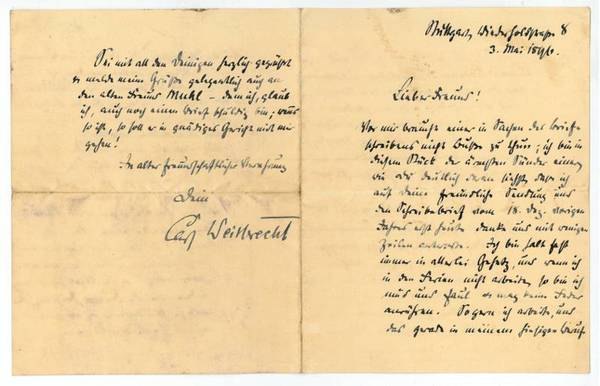 Stuttgart, Wiederholdstraße 8
3. Mai 1896.
Lieber Freund!
Vor mir braucht einer in Sachen des Brief-
schreibens nicht Buße zu thun; ich bin in
diesem Stück der ärmsten Sünder einer,
wie du deutlich daran siehst, daß ich
auf deine freundliche Sendung und
den Schreibebrief vom 18. Dez. vorigen
Jahres erst heute danke und mit wenigen
Zeilen antworte. Ich bin halt fast
immer in allerlei Gehetz, und wenn ich
in den Ferien nicht arbeite, so bin ich
müd und faul u. mag keine Feder
anrühren. So gern ich arbeite, und
das gerade in meinem hiesigen Beruf
Sei mit all den Deinigen herzlich gegrüßt
u. melde meine Grüße gelegentlich auch an
den alten Freund Muhl – dem ich, glaub
ich, auch noch einen Brief schuldig bin; wenns
so ist, so soll er in gnädiges Gericht mit mir
gehen!
In alter freundschaftlicher Verehrung
Dein
Carl Weitbrecht